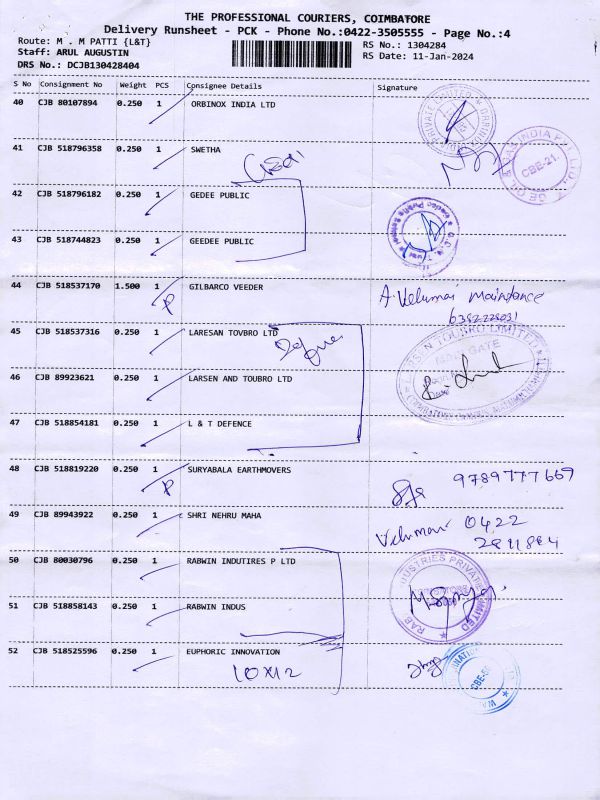 THE PROFESSIONAL COURIERS, COIMBATORE
Delivery Runsheet - PCK - Phone No.:0422-3505555 - Page No.:4
Route: M . M PATTI {L&T}
RS No.: 1304284
Staff: ARUL AUGUSTIN
RS Date: 11-Jan-2024
DRS No.: DCJB130428404
S No Consignment No Weight PCS Consignee Details Signature
40 CJB 80107894 0.250 1 ORBINOX INDIA LTD
41 CJB 518796358 0.250 1 SWETHA
CBE-21.
42 CJB 518796182 0.250 1 GEDEE PUBLIC
43 CJB 518744823 0.250 1 GEEDEE PUBLIC
44 CJB 518537170 1.500 1 GILBARCO VEEDER
P
A. Velumai Maindance
6382228031
45 CJB 518537316 0.250 1 LARESAN TOVBRO LTD
46 CJB 89923621 0.250 1 LARSEN AND TOUBRO LTD
47 CJB 518854181 0.250 1 L & T DEFENCE
48 CJB 518819220 0.250 1 SURYABALA EARTHMOVERS
P
9789777669
49 CJB 89943922 0.250 1 SHRI NEHRU MAHA
Velumai 0422
50 CJB 80030796 0.250 1 RABWIN INDUTIRES P LTD
51 CJB 518858143 0.250 1 RABWIN INDUS
52 CJB 518525596 0.250 1 EUPHORIC INNOVATION
10x12